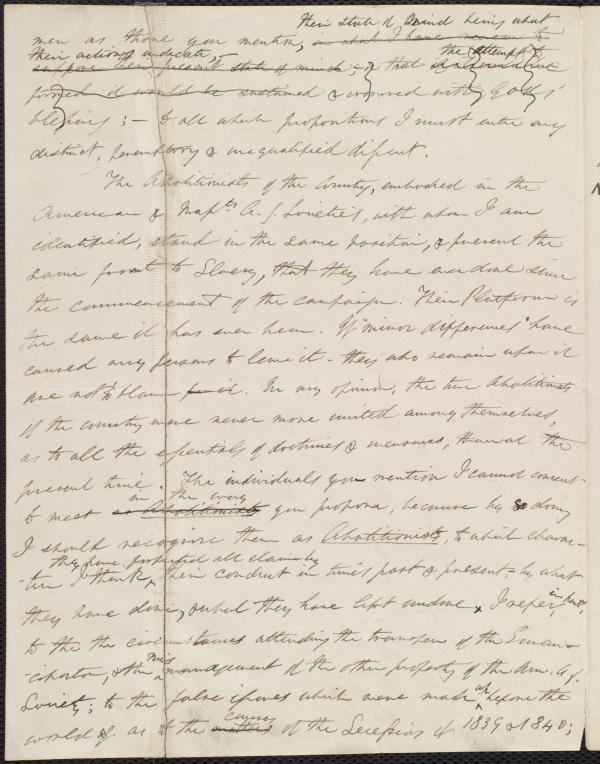 their state of mind being what
men as those you mention, in what I have reason to
their actions indicate the attempt to
suppose their present state of mind; that
formed it would be sustained & crowned with God's'
blessing; — to all which propositions I must enter my
distinct, peremptory & unqualified dissent.
The Abolitionists of the Country, embodied in the
American & Masstts A. S. Societies, with whom I am
identified, stand in the same position, & present the
same front to Slavery, that they have ever done since
the commencement of the campaign. Their Platform is
the same it has ever been. If "minor differences" have
caused any persons to leave it — they who remain upon it
are not to blame for it. In my opinion, the true Abolitionists
of the country were never more united among themselves,
as to all the essentials of doctrines & measures, than at the
present time. The individuals you mention I cannot consent
in the way
to meet as Abolitionists you propose, because by so doing
I should recognize them as Abolitionists, to which charac-
they have forfeited all claim by
-ter I think, their conduct in times past & present, by what
they have done, & what they have left undone. I refer, in part,
to the the circumstances attending the transfer of the Eman-
-cipator, & the mismanagement of the other property of the Am. A. S.
Society; to the false issues which were made up before the
causes
world & as to the matters of the Secession of 1839 & 1840;